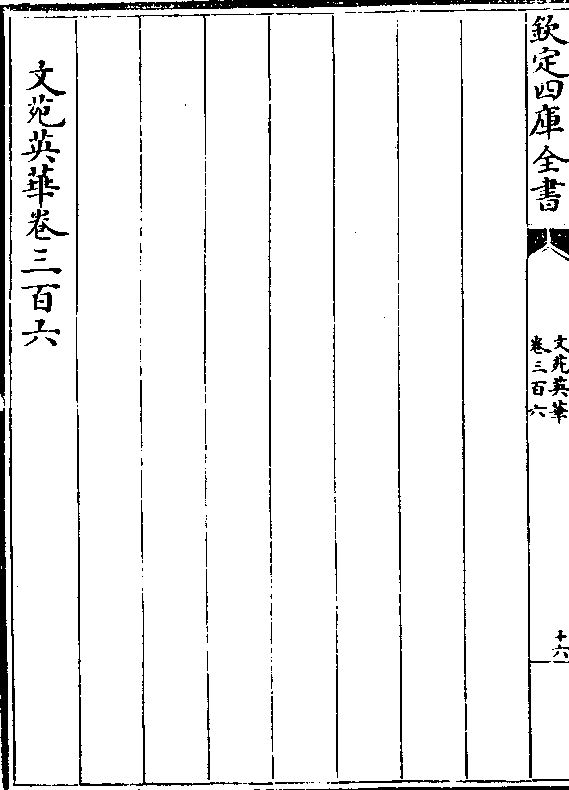 欽定四庫全書
文苑英華
卷三百六
十六
文苑英華卷三百六